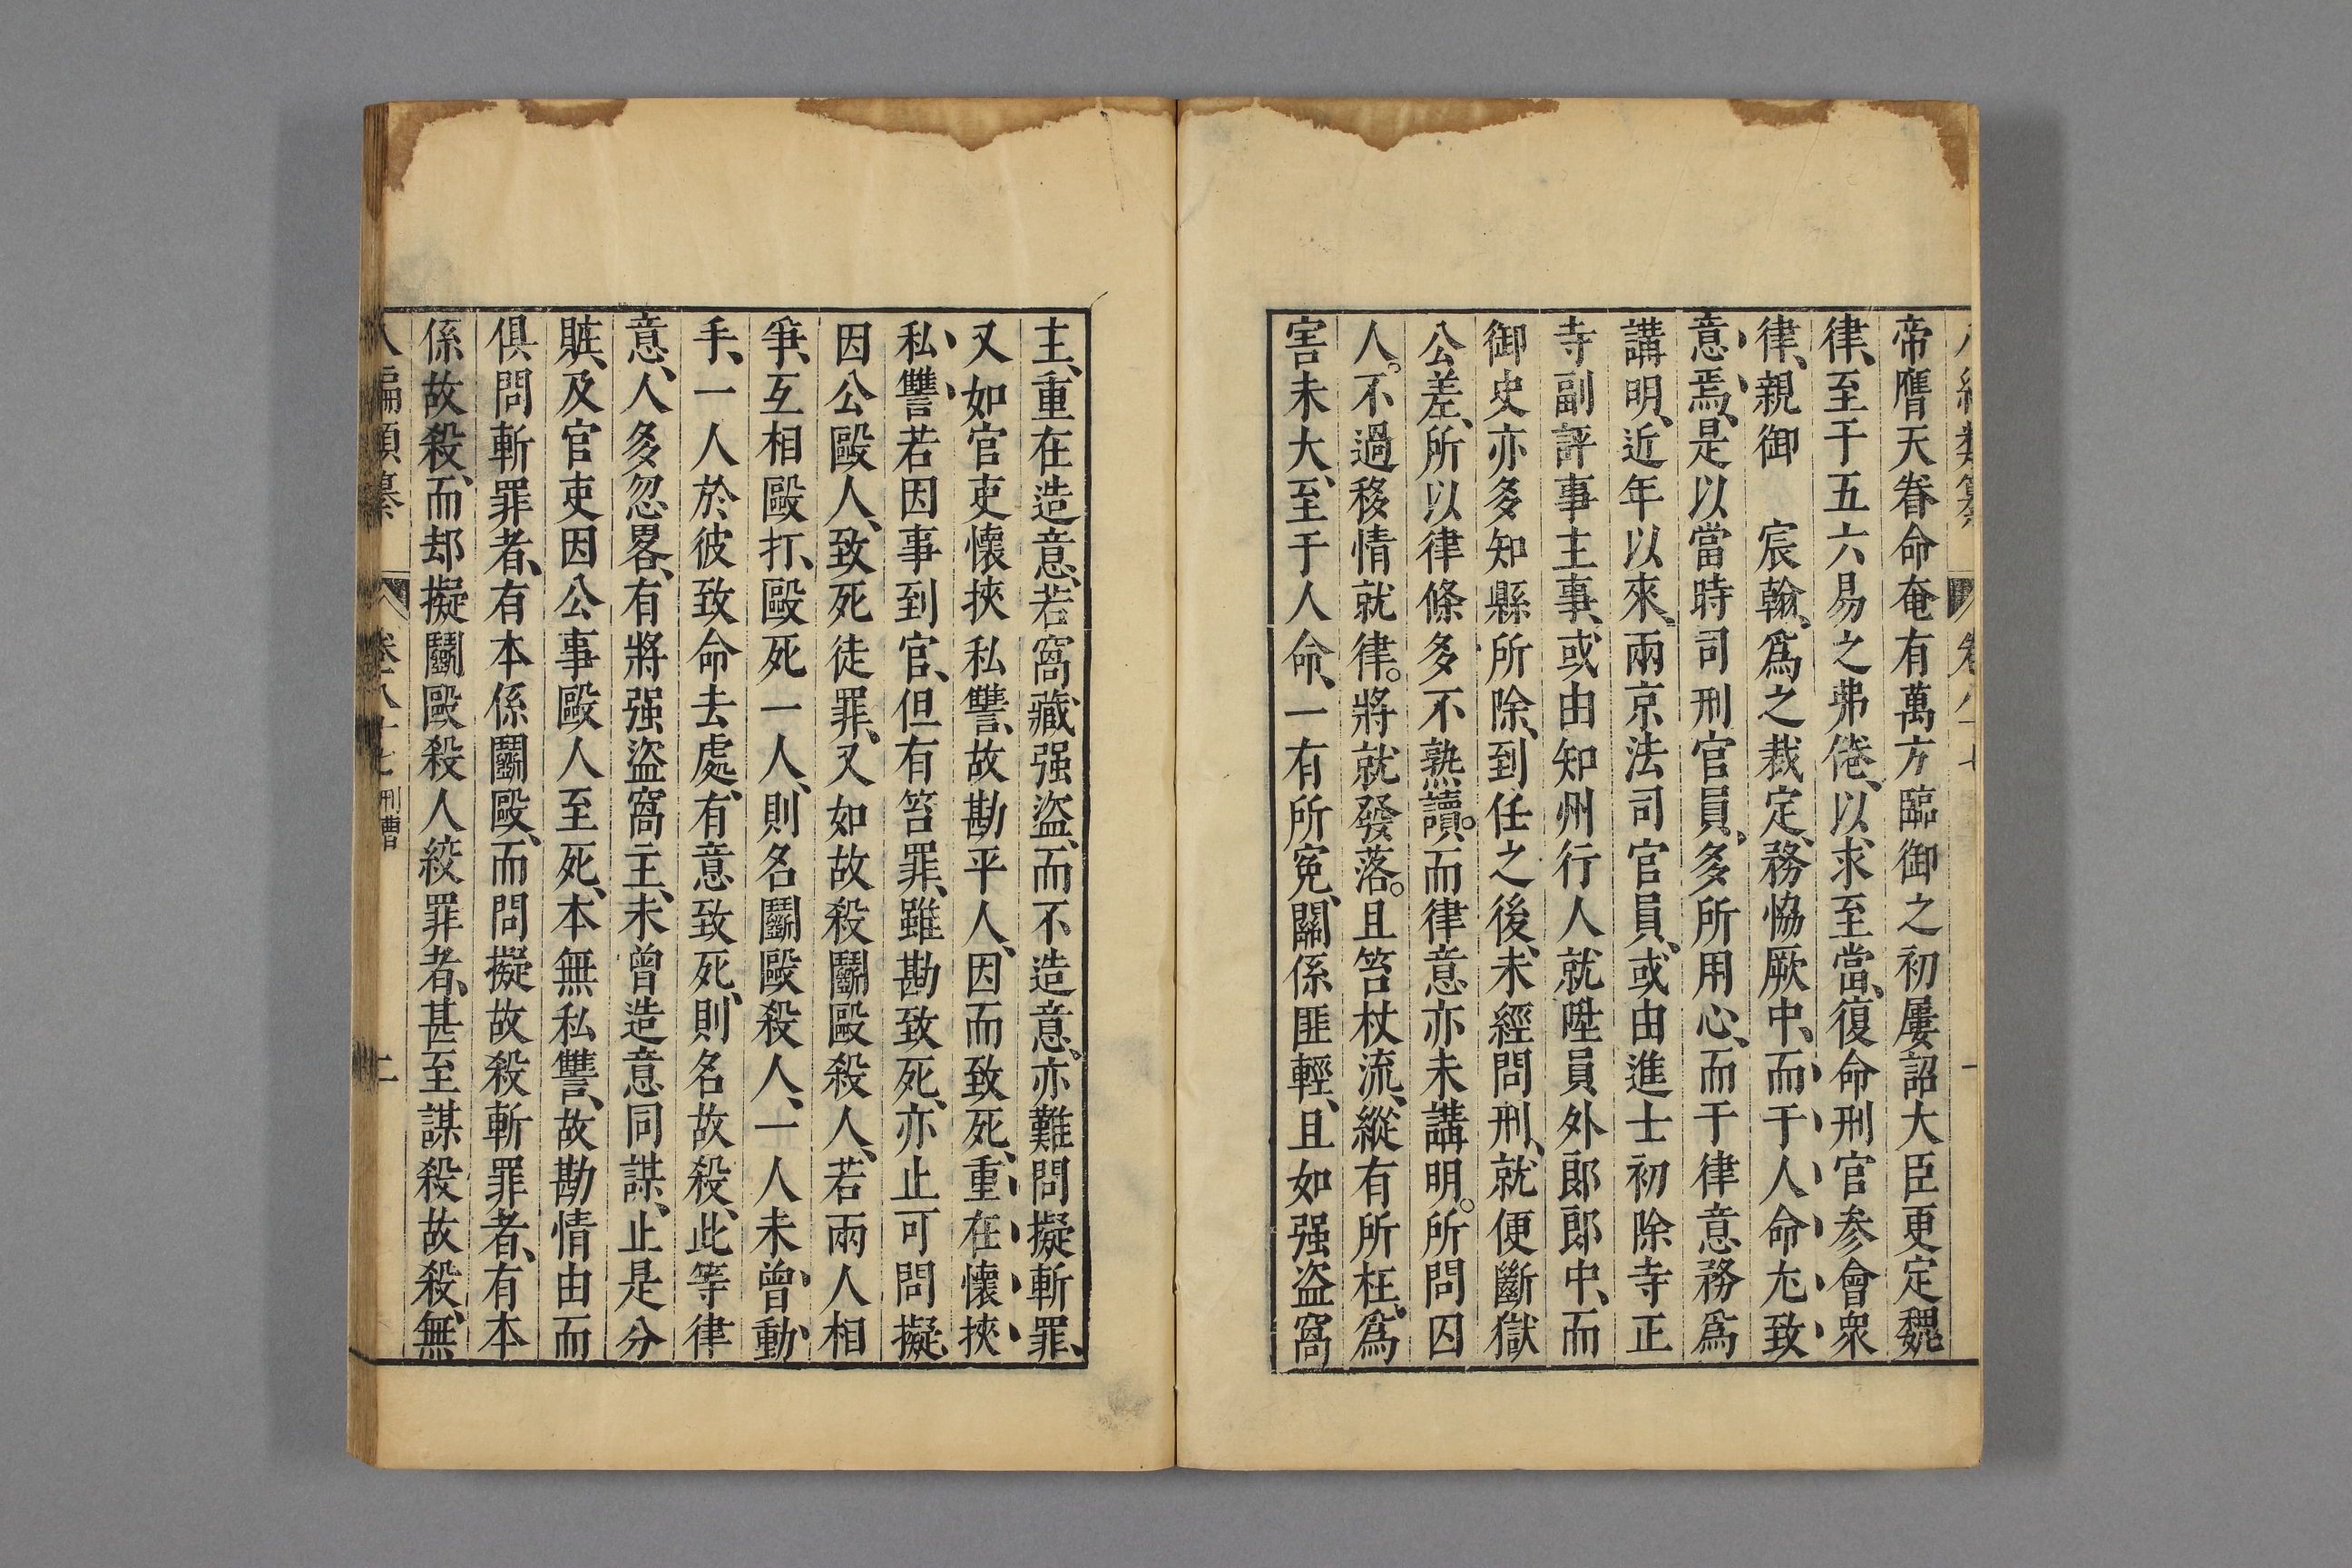 帝膺天眷命奄有萬方臨御之初屢詔大臣更定魏
律、至于五六易之弗倦、以求至當、復命刑官参會衆
律、親御　宸翰、爲之裁定、務恊厥中、而于人命尢致
意焉、是以當時司刑官員、多所用心、而于律意務爲
講明、近年以來、兩京法司官員、或由進士初除寺正
寺副評事主事、或由知州行人就陞員外郎郎中、而
御史亦多知縣所除、到任之後、未經問刑、就便斷獄
公差、所以律條多不熟讀。而律意亦未講明。所問囚
人。不過移情就律。將就發落。且笞杖流、縱有所枉、爲
害未大、至于人命、一有所寃、關係匪輕、且如强盗窩
主、重在造意、若窩藏强盗、而不造意、亦難問擬斬罪、
又如官吏懷挾私讐、故勘平人、因而致死、重在懷挾
私讐若因事到官、但有笞罪、雖勘致死、亦止可問擬
因公毆人、致死徒罪、又如故殺鬬毆殺人、若兩人相
爭、互相毆打、毆死一人、則名鬬毆殺人、一人未曾動
手、一人於彼致命去處、有意致死、則名故殺、此等律
意、人多忽畧、有將强盗窩主、未曾造意同謀、止是分
賍、及官吏因公事毆人至死、本無私讐、故勘情由而
俱問斬罪者、有本係鬬毆、而問擬故殺斬罪者、有本
係故殺、而却擬鬬毆殺人絞罪者、甚至謀殺故殺、無
八編類纂　卷之八十七　刑曹　二